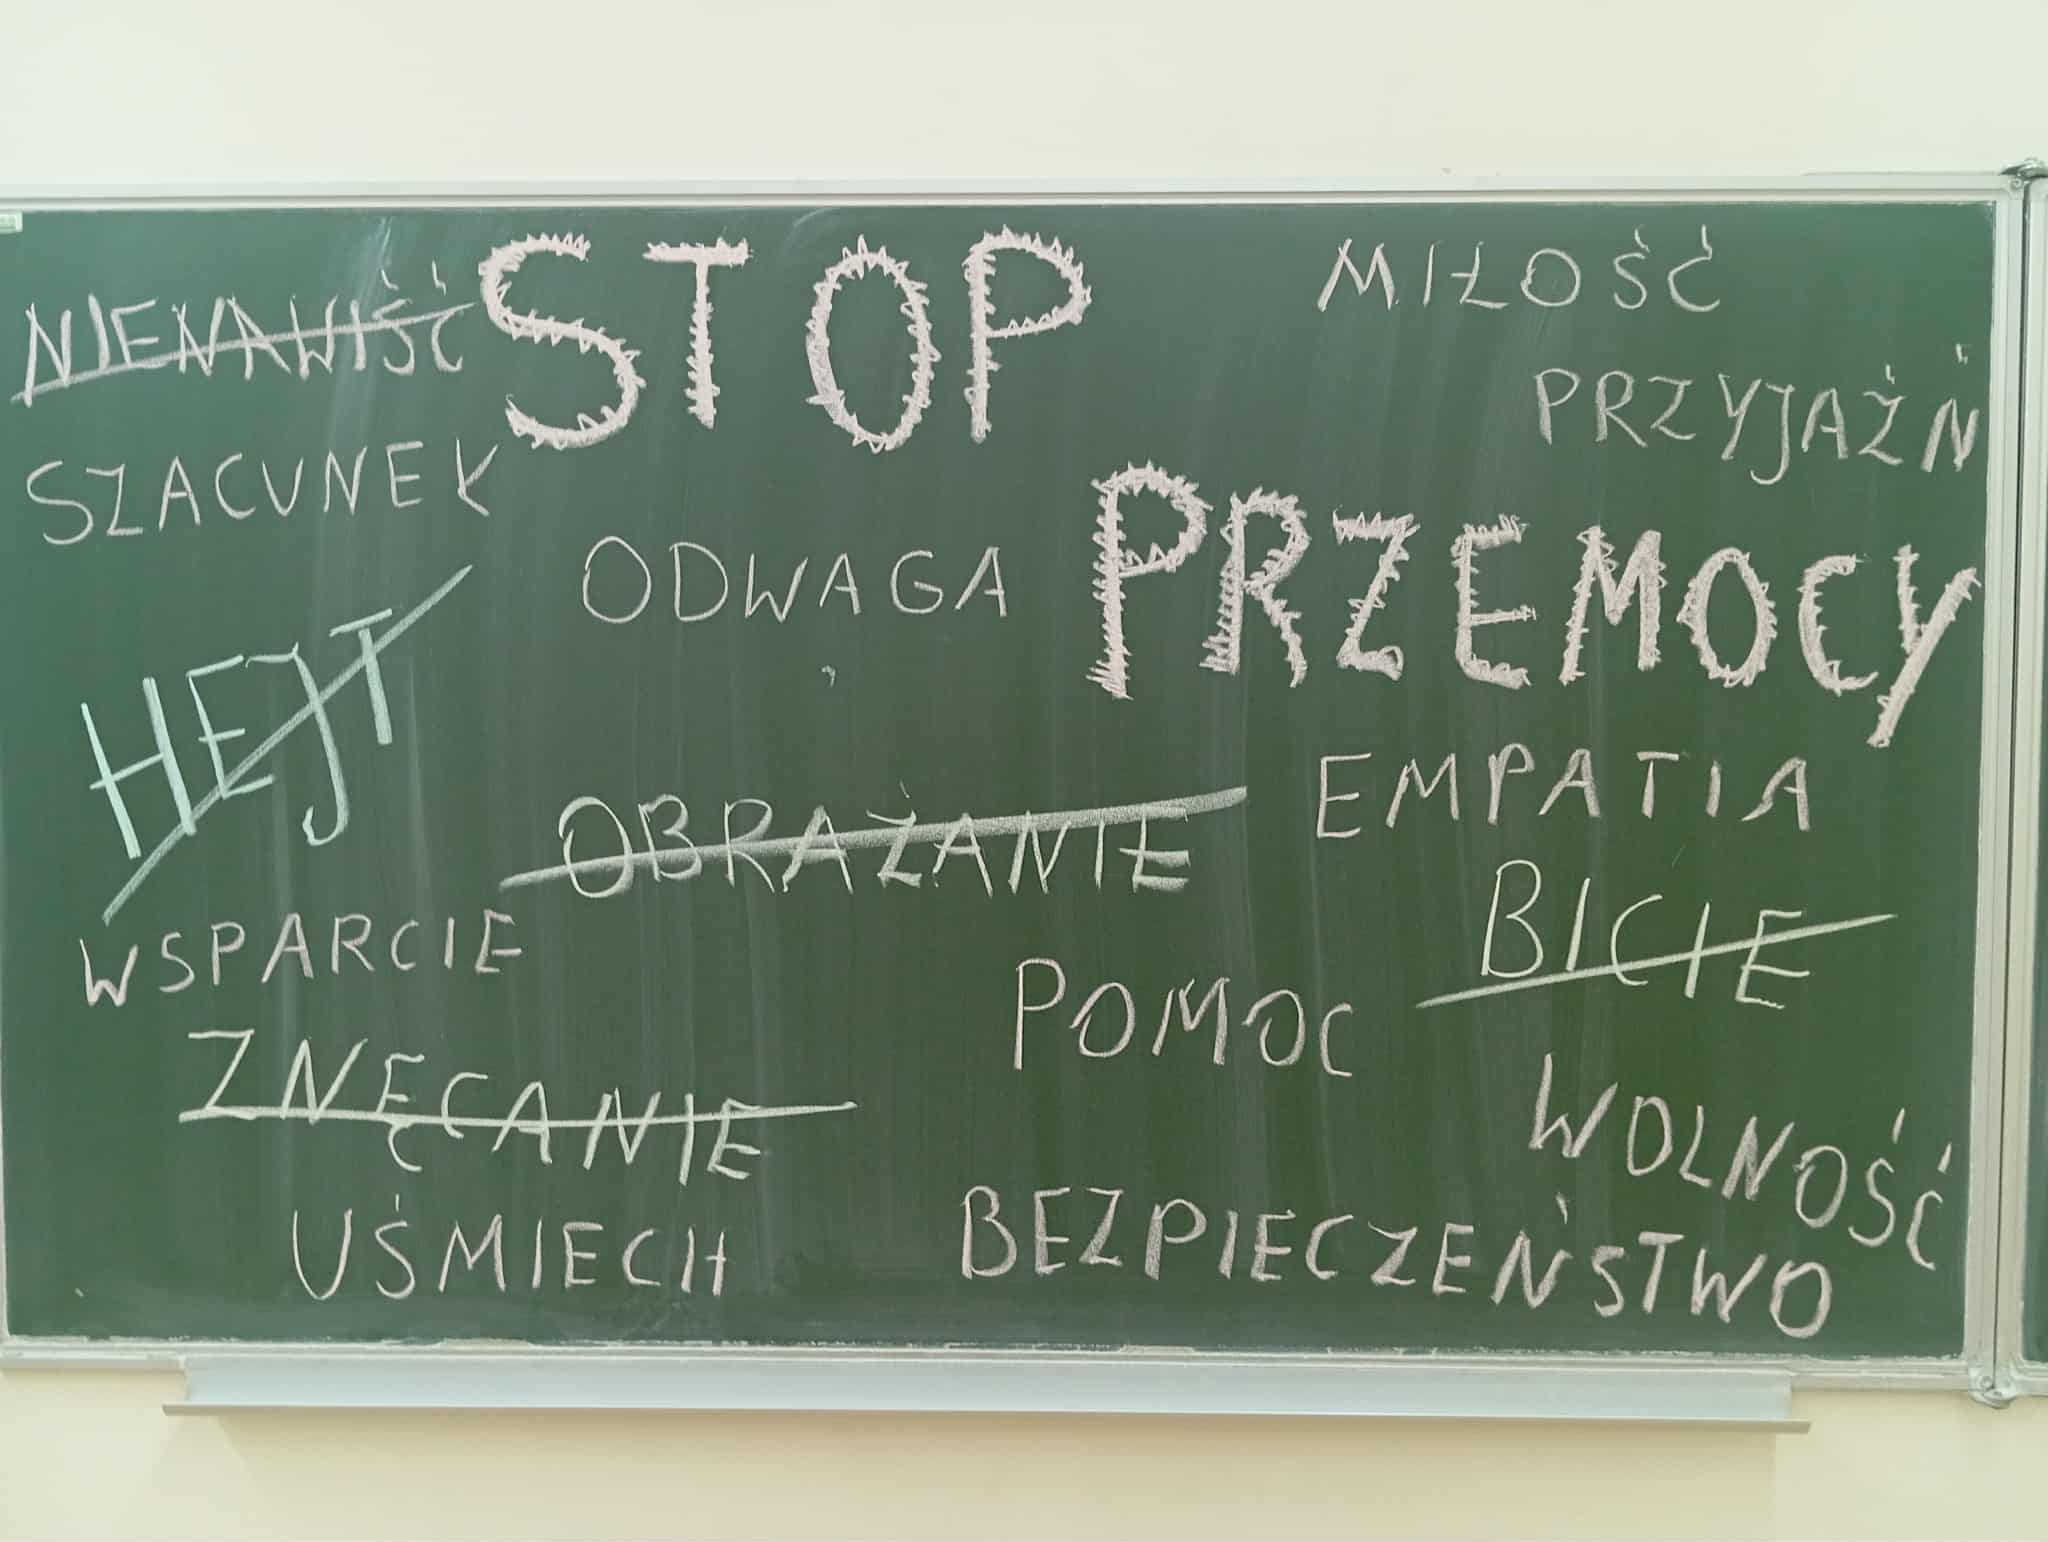 NIENAWIŚĆ
STOP
MIŁOŚĆ
PRZYJAŹŃ
SZACUNEK
ODWAGA
PRZEMOCY
HEJT
OBRAŻANIE
EMPATIA
BICIE
WSPARCIE
POMOC
ZNĘCANIE
WOLNOŚĆ
UŚMIECH
BEZPIECZEŃSTWO